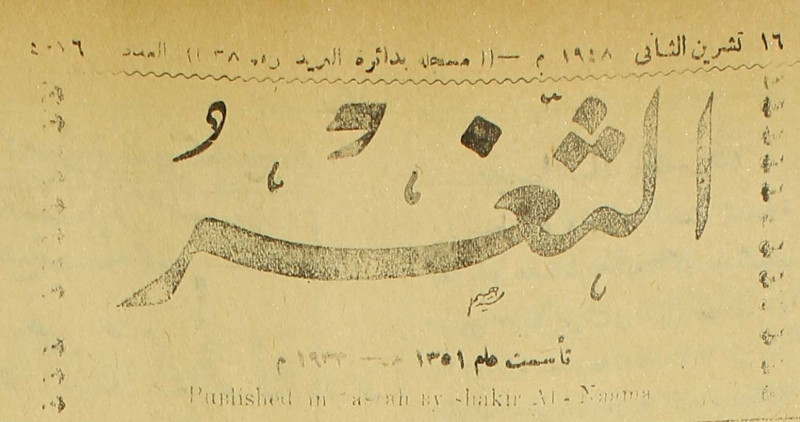 ١٦ تشرين الثاني ١٩٤٨ م —(( مسجلة بدائرة البريد رقم ٣٨ )) العدد ٤٠١٦
الثغر
تأسست عام ١٣٥١ هـ — ١٩٣٣ م
Published in Basrah By shakir Al-Naama